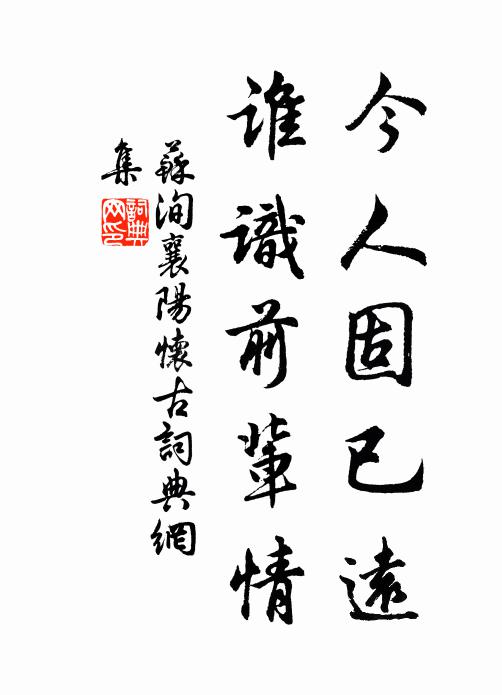 今人固已遠
誰識前輩情
蘇洵襄陽懷古詞典網
集
詞典
网印